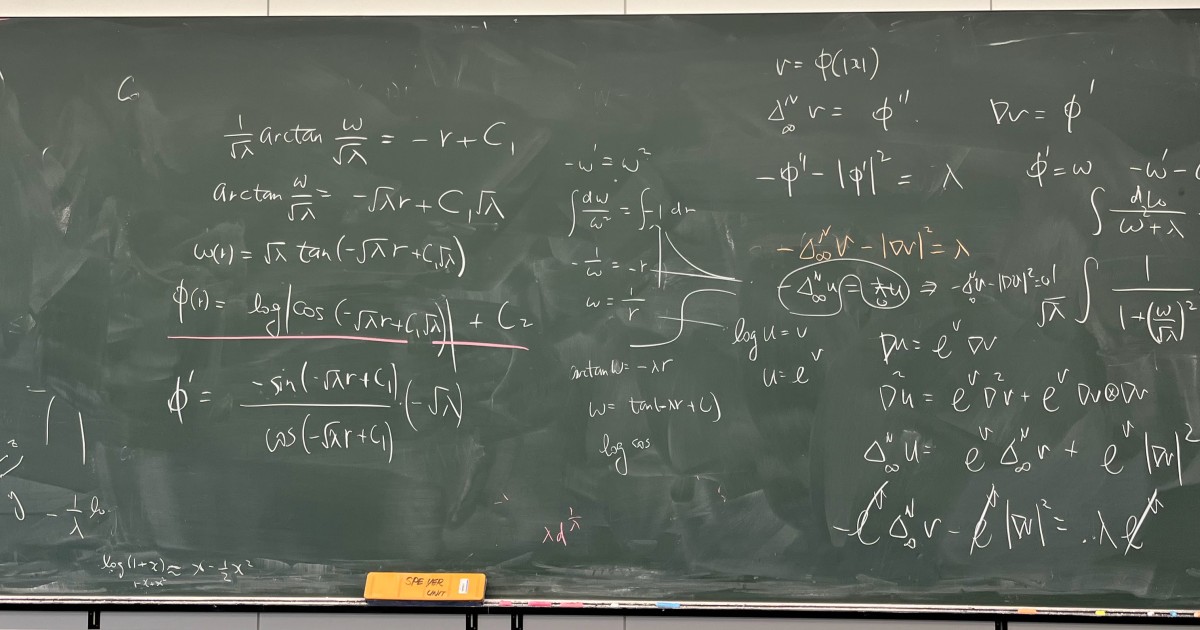 1/√λ arctan ω/√λ = - r + C₁
arctan ω/√λ = -√λr + C₁√λ
ω(r) = √λ tan(-√λr + C₁√λ)
φ(r) = log|cos(-√λr + C₁√λ)| + C₂
φ' = -sin(-√λr + C₁)/cos(-√λr + C₁) · (-√λ)
log(1+x) ≈ x - 1/2 x²
-ω' = ω²
∫ dω/ω² = ∫ -1 dr
-1/ω = -r
ω = 1/r
arctan ω = -λr
ω = tan(-λr + C)
log cos
λd^(1/λ)
v = φ(|x|)
Δ_∞^N v = φ''. ∇v = φ'
-φ'' - |φ'|² = λ φ' = ω -ω' -
∫ dω/(ω² + λ)
-Δ_∞^N v - |∇v|² = λ
√λ ∫ 1/(1+(ω/√λ)²)
log u = v
u = e^v
Du = e^v ∇v
D²u = e^v D²v + e^v Dv⊗Dv
Δ_∞^N u = e^v Δ_∞^N v + e^v |∇v|²
-e^v Δ_∞^N v - e^v |∇v|² = ..λe^v
SPEYER
UNIT